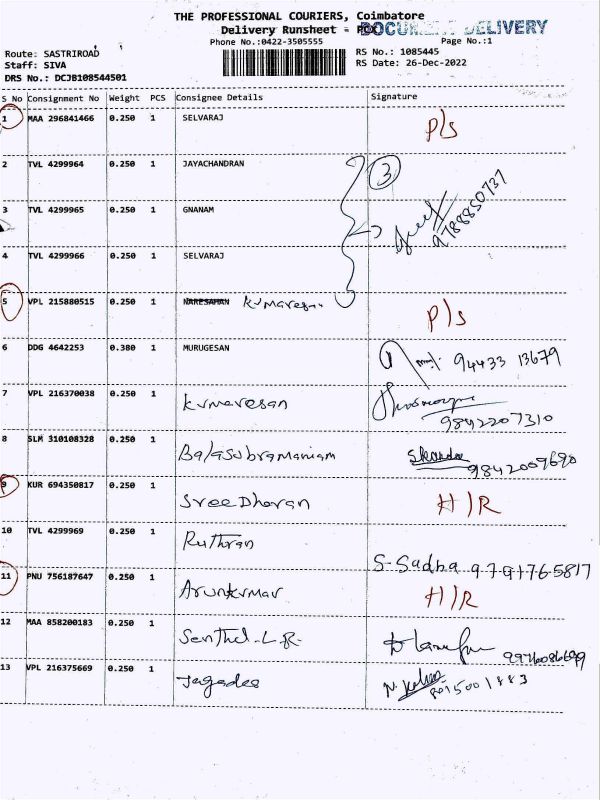 THE PROFESSIONAL COURIERS, Coimbatore
Delivery Runsheet - POD
DOCUMENT DELIVERY
Phone No.:0422-3505555
Page No.:1
Route: SASTRIROAD
RS No.: 1085445
Staff: SIVA
RS Date: 26-Dec-2022
DRS No.: DCJB108544501
S No Consignment No Weight PCS Consignee Details Signature
1 MAA 296841466 0.250 1 SELVARAJ P/s
2 TVL 4299964 0.250 1 JAYACHANDRAN 3
9788850737
3 TVL 4299965 0.250 1 GNANAM
4 TVL 4299966 0.250 1 SELVARAJ
5 VPL 215880515 0.250 1 Kumaresan P/s
6 DDG 4642253 0.380 1 MURUGESAN 94433 13679
7 VPL 216370038 0.250 1 Kumaresan
9842207310
8 SLM 310108328 0.250 1 Balasubramaniam
9842009690
9 KUR 694350817 0.250 1 Sree Dharan H/R
10 TVL 4299969 0.250 1 Ruthran
S-Sadha 9791765817
11 PNU 756187647 0.250 1 Arunkumar H/R
12 MAA 858200183 0.250 1 Senthil-L.R.
13 VPL 216375669 0.250 1 Jagadee